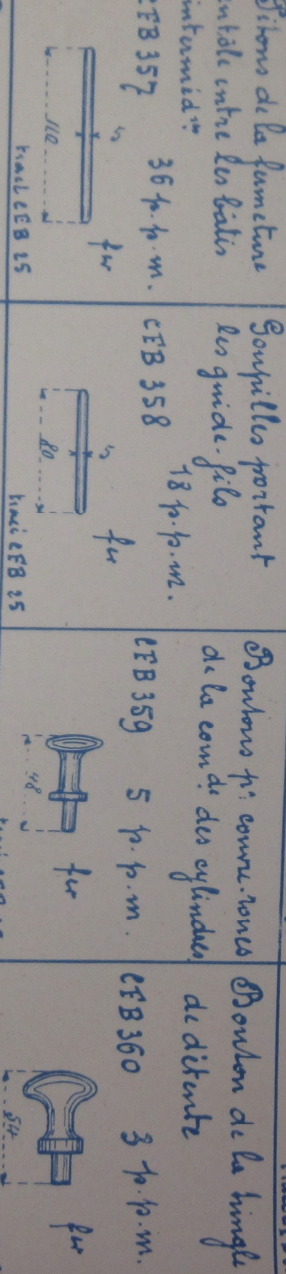 Pitons de la fermeture
entôle entre les bâtis
intermid.res
CFB 357 36 p.p.m.
5
110
fer
tracé CFB 25
Goupilles portant
les guide-fils
CFB 358 18 p.p.m.
5
80
fer
tracé CFB 25
Boutons pr. couvre-roues
de la com de. des cylindres
CFB 359 5 p.p.m.
48
fer
Bouton de la tringle
de détente
CFB 360 3 p.p.m.
54
fer